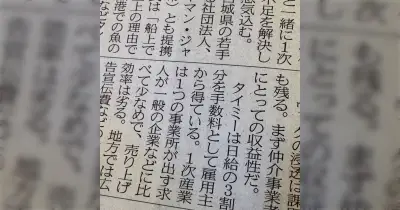 と一緒に1次
不足を解決し
気込む。
城県の若手
社団法人、
マン・ジャ
）とも提携
は「船上で
上の理由で
港での魚の
など
クの浸透には課
も残る。まず仲介事業者
にとっての収益性だ。
タイミーは日給の3割
分を手数料として雇用主
から得ている。1次産業
は1つの事業所が出す求
人が一般の企業などに比
べて少なめで、売り上げ
効率は劣る。地方では広
告宣伝費など